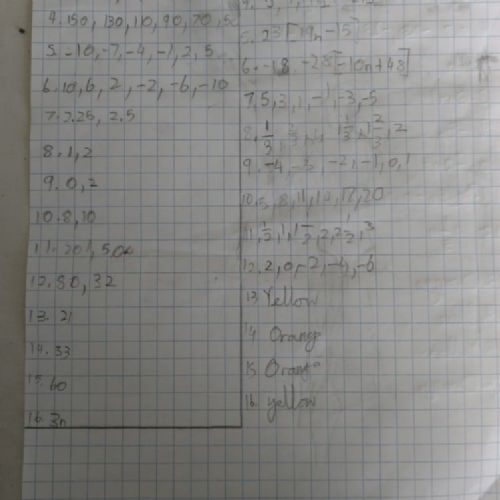 4. 150, 130, 110, 90, 70, 50
5. -10, -7, -4, -1, 2, 5
6. 10, 6, 2, -2, -6, -10
7. 2.25, 2.5
8. 1, 2
9. 0, 2
10. 8, 10
12. 80, 32
13. 21
14. 33
15. 60
16. 3n
5. 23 [19n-15]
6. -18 -28 [-10n+48]
7. 5, 3, 1, -1, -3, -5
9. -4, -3, -2, -1, 0, 1
10. 5, 8, 11, 14, 17, 20
11. 1/2, 1, 1 1/2, 2, 2 1/2, 3
12. 2, 0, -2, -4, -6
13 Yellow
14 Orange
15 Orange
16. yellow